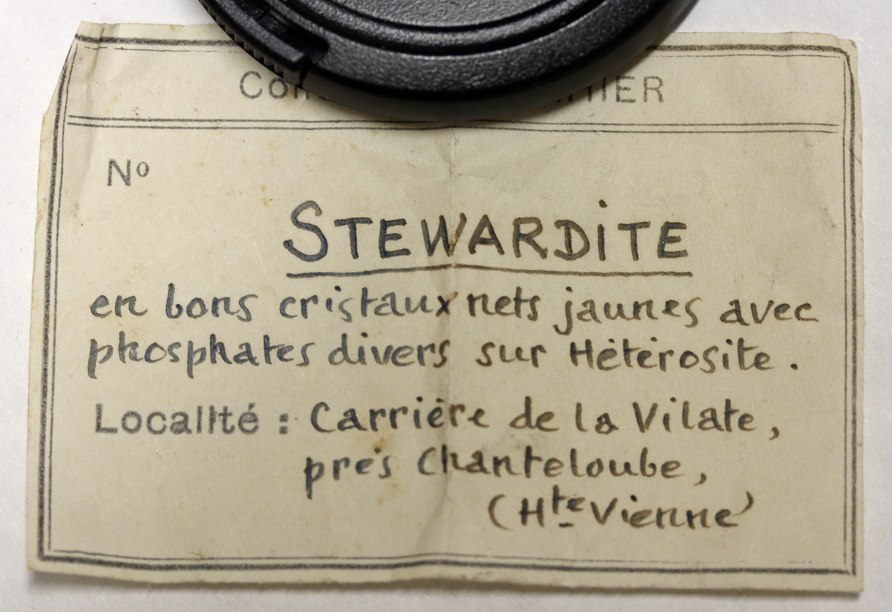 Nº
STEWARDITE
en bons cristaux nets jaunes avec
phosphates divers sur Hétérosite.
Localité : Carrière de la Vilate,
près Chanteloube,
(Hte Vienne)